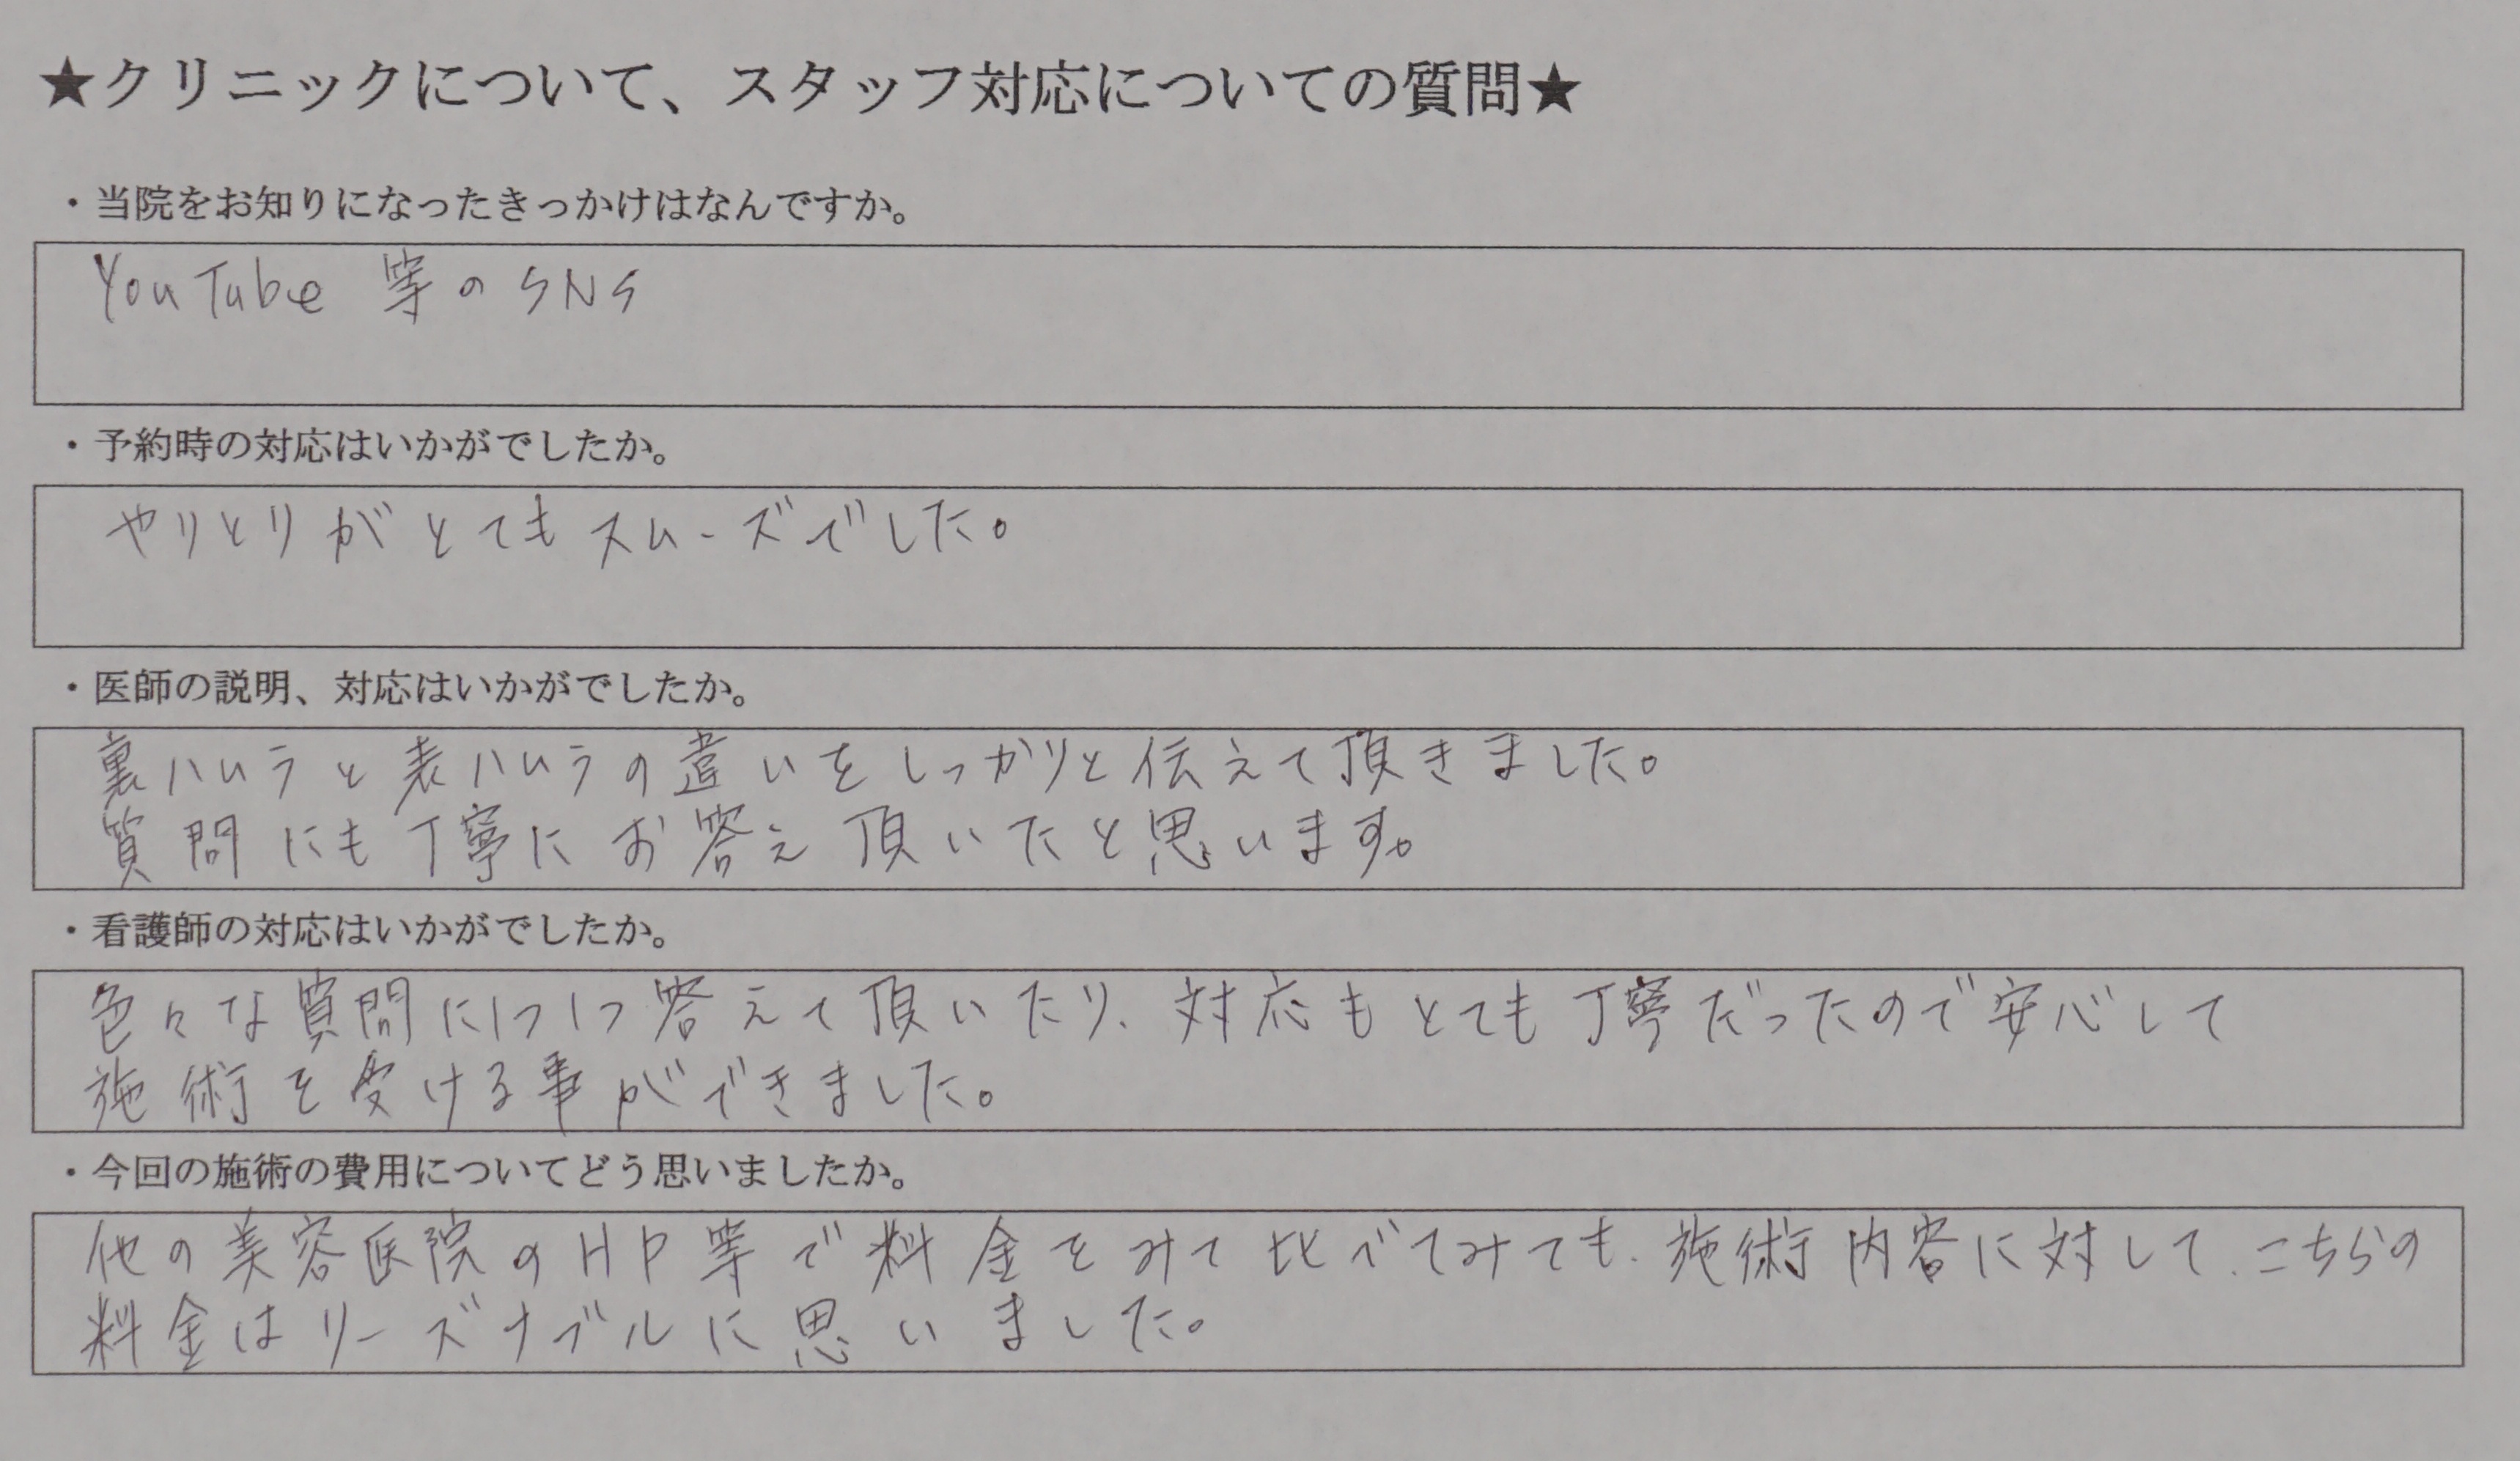 ★クリニックについて、スタッフ対応についての質問★
・当院をお知りになったきっかけはなんですか。
YouTube 等のSNS
・予約時の対応はいかがでしたか。
やりとりがとてもスムーズでした。
・医師の説明、対応はいかがでしたか。
裏ハムラと表ハムラの違いをしっかりと伝えて頂きました。
質問にも丁寧にお答え頂いたと思います。
・看護師の対応はいかがでしたか。
色々な質問に1つ1つ答えて頂いたり、対応もとても丁寧だったので安心して
施術を受ける事ができました。
・今回の施術の費用についてどう思いましたか。
他の美容医院のHP等で料金をみて比べてみても、施術内容に対して、こちらの
料金はリーズナブルに思いました。